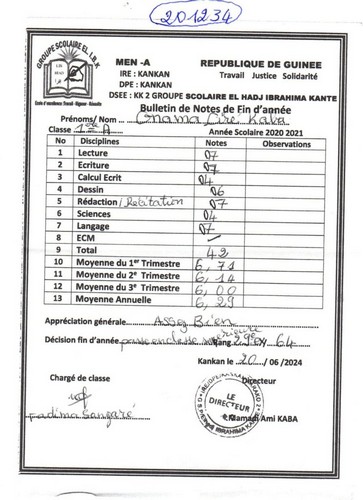 201234
GROUPE SCOLAIRE EL. I.B.K
MEN -A REPUBLIQUE DE GUINEE
IRE : KANKAN Travail Justice Solidarité
DPE : KANKAN
DSEE : KK 2 GROUPE SCOLAIRE EL HADJ IBRAHIMA KANTE
Bulletin de Notes de Fin d'année
Prénoms/ Nom Kaba
Classe 1ère A Année Scolaire 2020 2021
No Disciplines Notes Observations
1 Lecture 07
2 Ecriture 07
3 Calcul Ecrit 04
4 Dessin 06
5 Rédaction/Récitation 07
6 Sciences 04
7 Langage 07
8 ECM
9 Total 42
10 Moyenne du 1er Trimestre 6,71
11 Moyenne du 2e Trimestre 6,14
12 Moyenne du 3e Trimestre 6,00
13 Moyenne Annuelle 6,29
Appréciation générale Assez Bien
Décision fin d'année passe en classe Rang 29e 64
Kankan le 20 /06 /2024
Chargé de classe Directeur
LE DIRECTEUR
Fadima Sangaré Mamadi Ami KABA